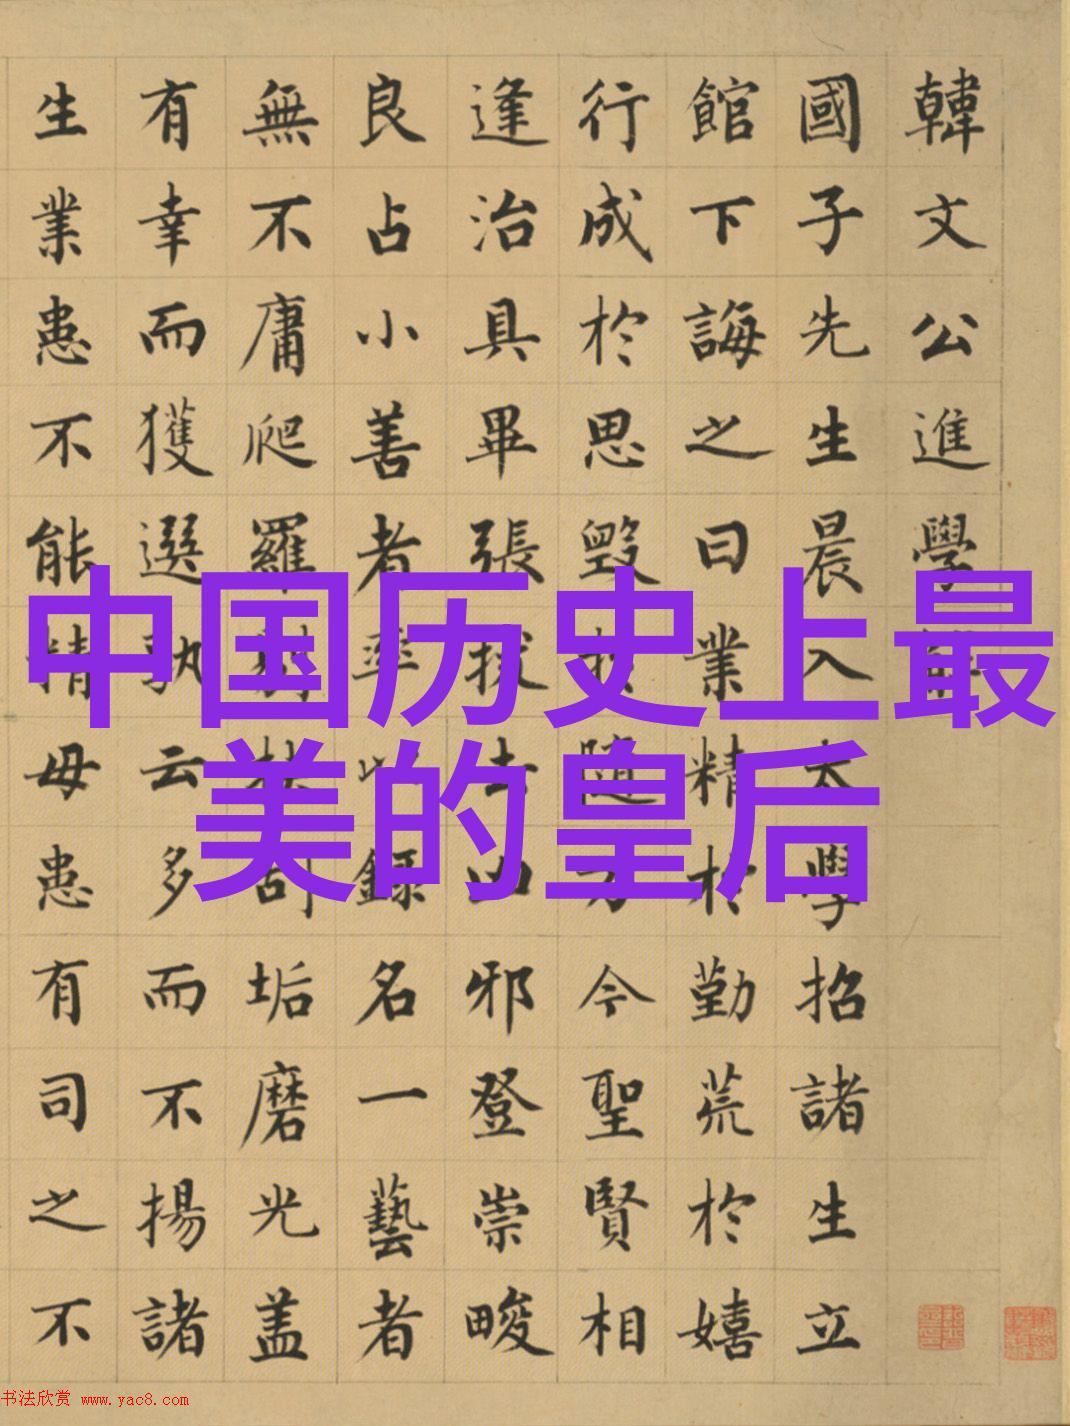 中国历史上最
美的皇后
韓文公進學解
國子先生晨入太學招諸生立
館下誨之曰業精於勤荒於嬉
行成於思毀於隨方今聖賢相
逢治具畢張拔去凶邪登崇畯
良占小善者率以錄名一藝者
無不庸爬羅剔抉刮垢磨光盖
有幸而獲選孰云多而不揚諸
生業患不能精毋患有司之不
书法欣赏 www.yac8.com